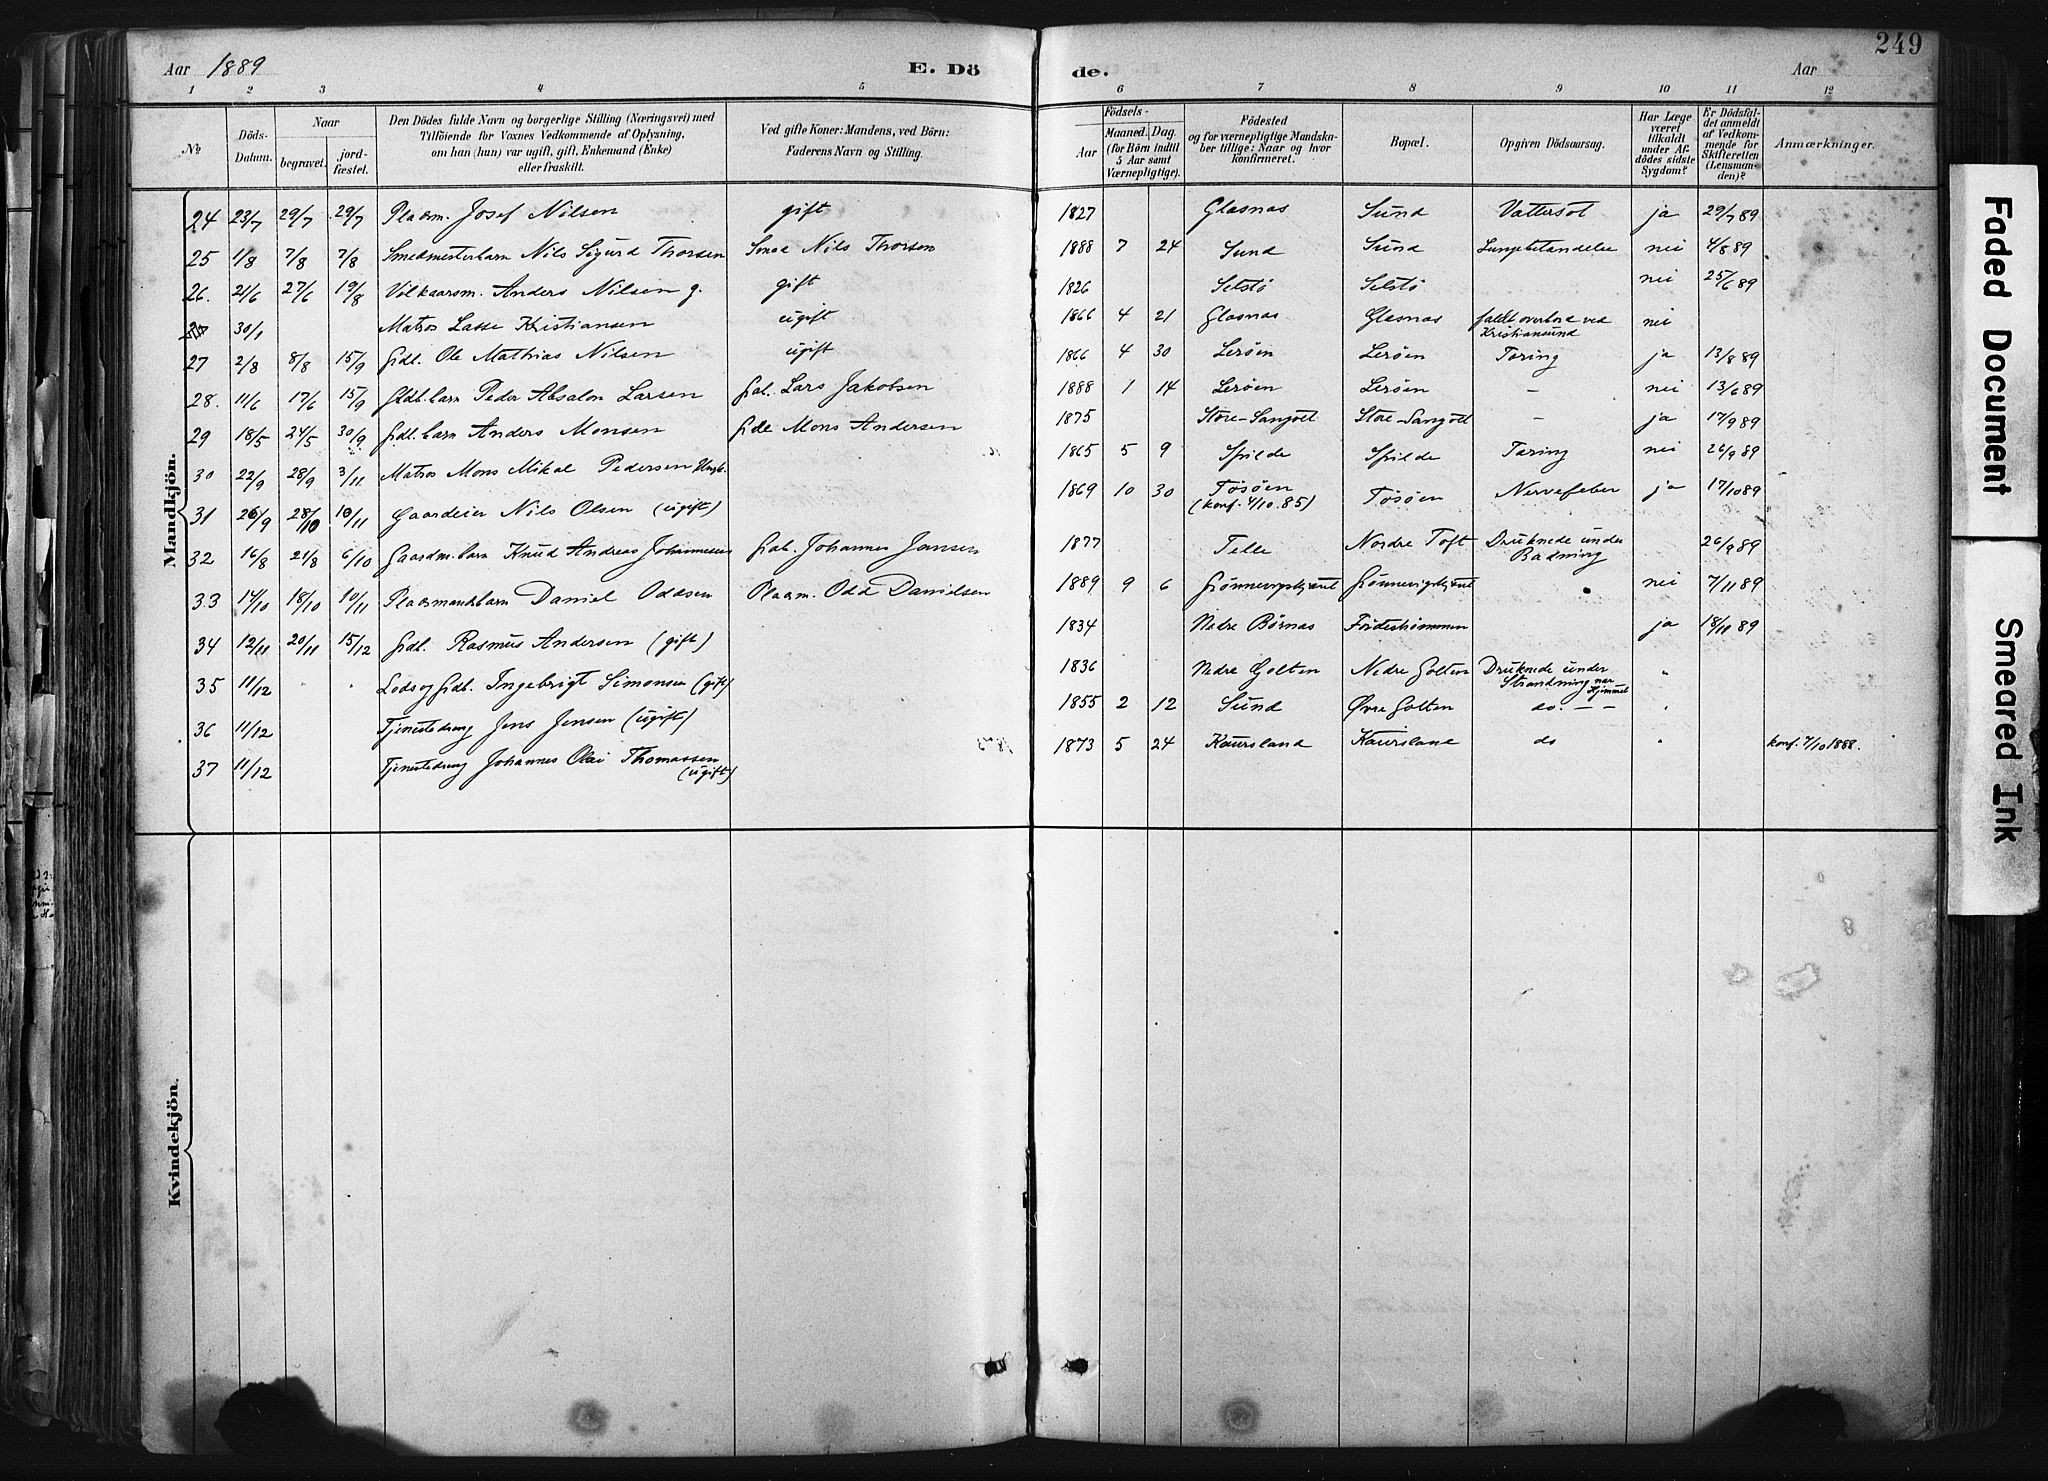 Aar 1889
E. Dö
de.
Aar
249
1 2 3 4 5 6 7 8 9 10 11 12
№
Döds-
Datum.
Naar
begravet.
jord-
fæstet.
Den Dödes fulde Navn og borgerlige Stilling (Næringsvei) med
Tilföiende for Voxnes Vedkommende af Oplysning,
om han (hun) var ugift, gift, Enkemand (Enke)
eller fraskilt.
Ved gifte Koner: Mandens, ved Börn:
Faderens Navn og Stilling.
Födsels-
Aar
Maaned. Dag.
(for Börn indtil
5 Aar samt
Værnepligtige).
Födested
og for værnepligtige Mandska-
ber tillige: Naar og hvor
konfirmeret.
Bopæl.
Opgiven Dödsaarsag.
Har Læge
været
tilkaldt
under Af-
dödes sidste
Sygdom?
Er Dödsfal-
det anmeldt
af Vedkom-
mende for
Skifteretten
(Lensman-
den)?
Anmærkninger.
Mandkjön.
24 23/7 29/7 29/7 Pladsm. Josef Nilsen gift 1827 Glasnas Sund Vattersot ja 29/7 89
25 1/8 7/8 7/8 Smedmesterbarn Nils Sigurd Thorsen Smed Nils Thorsen 1888 7 24 Sund Sund Lungebetændelse nei 4/8 89
26. 21/6 27/6 19/8 Vilkaarsm. Anders Nilsen g. gift 1826 Selstö Selstö nei 25/6 89
30/1 Matros Lasse Kristiansen ugift 1866 4 21 Glasnas Glasnas faldt overbord ved
Kristiansund nei
27 2/8 8/8 15/9 Gdb. Ole Mathias Nilsen ugift 1866 4 30 Leröen Leröen Tæring ja 13/8 89
28. 11/6 17/6 15/9 Gdb. barn Peder Absalon Larsen Gdb. Lars Jakobsen 1888 1 14 Leröen Leröen — nei 13/6 89
29 18/5 24/5 30/9 Gdb. barn Anders Monsen Gdb Mons Andersen 1875 Store-Sangolt Store-Sangolt — ja 17/9 89
30 22/9 28/9 3/11 Matros Mons Mikal Pedersen Ungk. 1865 5 9 Spilde Spilde Tæring nei 26/9 89
31 26/9 28/10 10/11 Gaardeier Nils Olsen (ugift) 1869 10 30 Tösöen
(konf. 4/10.85) Tösöen Nervefeber ja 17/10 89
32 16/8 21/8 6/10 Gaardm. barn Knud Andreas Johannessen Gdb. Johannes Jansen 1877 Telle Nordre Toft Druknede under
Badning 26/9 89
33 14/10 18/10 10/11 Pladsmandsbarn Daniel Oddsen Pladsm. Odd Danielsen 1889 9 6 Grönnevigskjæret Grönnevigskjæret nei 7/11 89
34 12/11 20/11 15/12 Gdb. Rasmus Andersen (gift) 1834 Nedre Börnas ja 18/11 89
35 11/12 Lods og Gdb. Ingebrigt Simonsen (gift) 1836 Nedre Golten Nedre Golten Druknede under
Strandning nær
36 11/12 Tjenestedreng Jens Jensen (ugift) 1855 2 12 Sund Øvre Golten do. — —
37 11/12 Tjenestedreng Johannes Olai Thomassen
(ugift) 1873 5 24 Kaursland Kaursland do konf. 7/10 1888.
Kvindekjön.
Faded Document
Smeared Ink